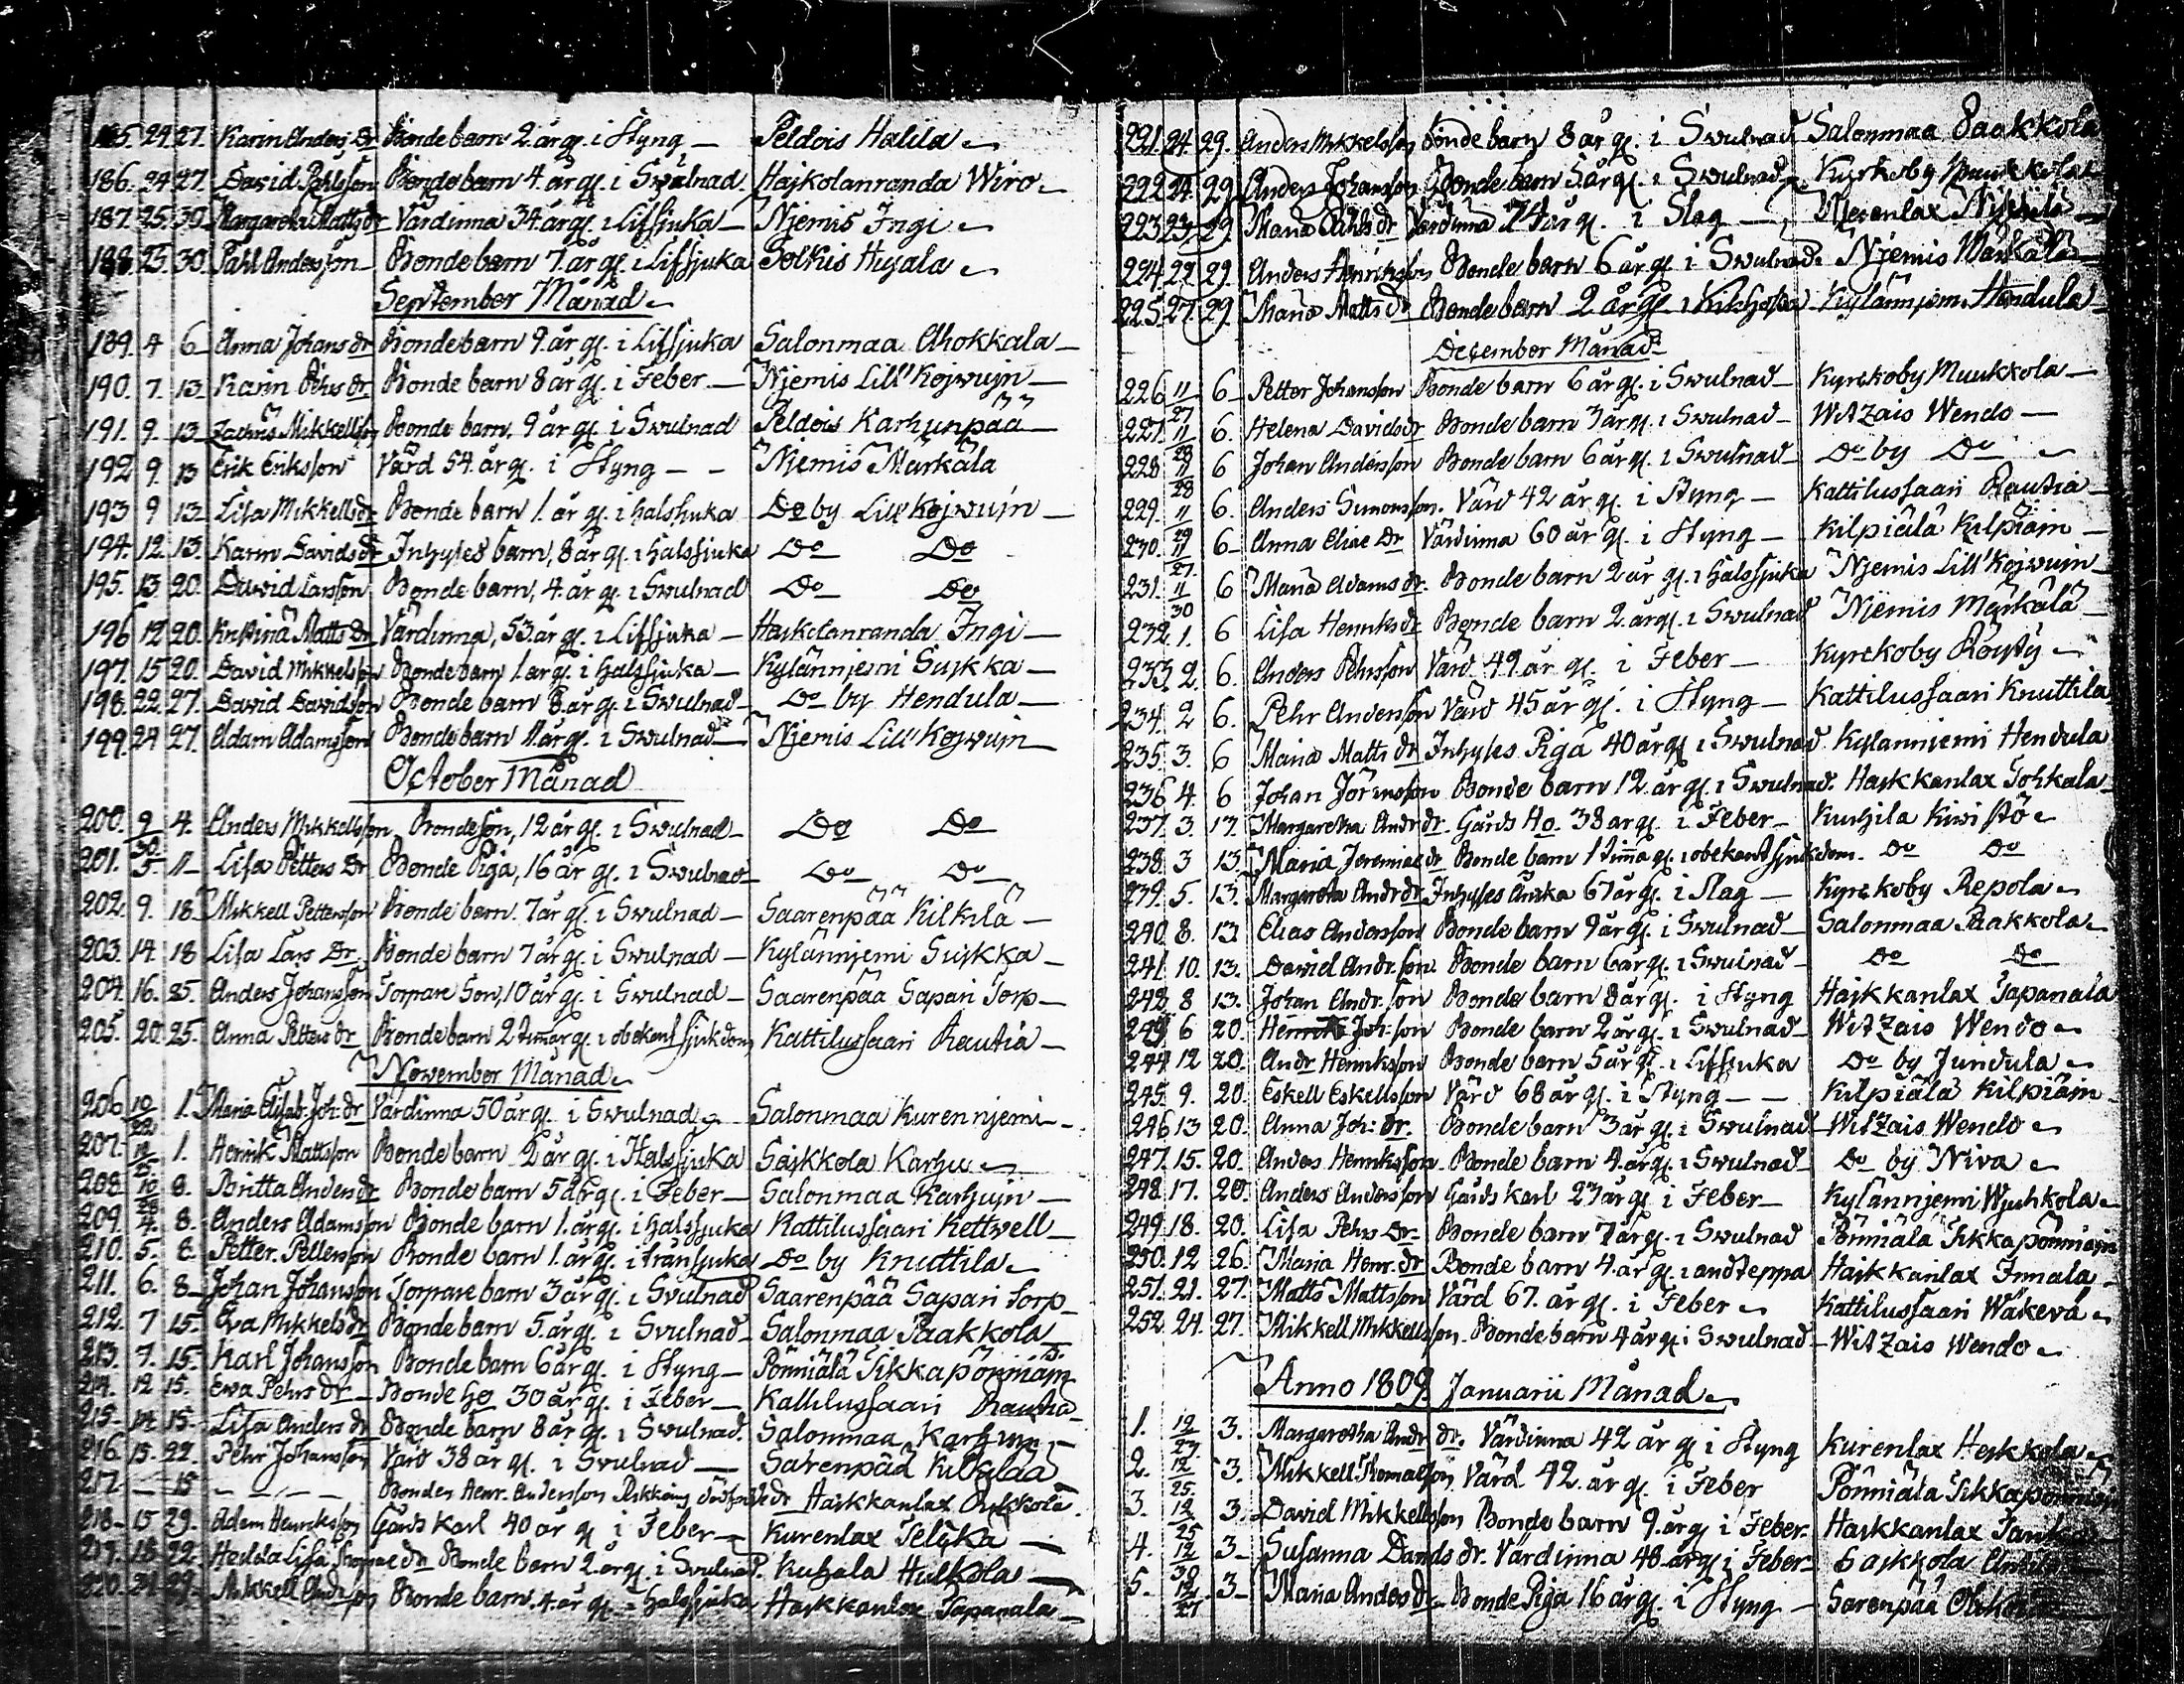 185. 24. 27. Karin Anders Dr Bonde barn 2. år gl. i Styng — Peldois Halila
186. 24 27. David Pahlsson Bonde barn 4. år gl. i Swulnad. Hajkolanranda Wiro
187. 25. 30. Margareta Matts dr Värdinna 34. år gl. i Lifsjuka — Njemis Ingi
188. 25. 30. Pahl Andersson — Bonde barn 7. år gl. i Lifsjuka
September Månad
189. 4 6 Anna Johans dr Bonde barn 9. år gl. i Lifsjuka Salonmaa Ahokkala —
190. 7. 13. Karin Pehrs dr. Bonde barn 8 år gl. i Feber — Njemis Lill Kojwujn —
191. 9. 13 Mikkellson Bonde barn. 9 år gl. i Swulnad Peldois Karhunpää —
192 9. 13 Erik Eriksson Värd 54. år gl. i Styng — — Njemis Markäla
193 9 13 Lisa Mikkells dr Bonde barn 1. år gl. i halssjuka Do by Lill Kojwujn —
194. 12. 13. Karin Davids dr Inhyses barn, 8 år gl. i halssjuka Do Do
195. 13. 20. David Larsson Bonde barn, 4. år gl. i Swulnad Do Do
196 12 20. Kristina Matts Dr Värdinna, 53. år gl. i Lifsjuka — Hajkolanranda Ingi —
197. 15 20. David Mikkelsson Bonde barn 1. år gl. i halssjuka — Kylännjemi Sujkka —
198. 22. 27. David Davidson Bonde barn 8 år gl. i Swulnad — Do by Hendula —
199. 24 27. Adam Adamsson Bonde barn 11. år gl. i Swulnad — Njemis Lill Kojwujn
October Månad
200. 9/30 4. Anders Mikkellsson Bondeson, 12 år gl. i Swulnad — Do Do
201. 5. 11 Lisa Petters Dr Bonde Piga, 16 år gl. i Swulnad — Do Do
202. 9. 18 Mikkell Pettersson Bonde barn. 7 år gl. i Swulnad — Saarenpää Kilkilä —
203. 14 18 Lisa Lars Dr. Bonde barn 7 år gl. i Swulnad — Kylännjemi Sujkka —
204. 16. 25. Anders Johansson Torpare Son, 10 år gl. i Swulnad — Saarenpää Sapari Torp —
205. 20. 25. Anna Petters dr Bonde barn 2 timar gl. i obekant sjukdom Kattilussaari Rautia —
November Månad
206 10/22 1. Maria Elisab. Joh. dr Värdinna 50 år gl. i Swulnad Salonmaa Kurennjemi —
207. 1. Henrik Mattsson Bonde barn 2 år gl. i Halssjuka Sajkkola Karhu
208 8. Britta Anders dr Bonde barn 5 år gl. i Feber — Salonmaa Karhujn —
209. 4. 8. Anders Adamsson Bonde barn 1. år gl. i halssjuka Kattilussaari Kettwell —
210. 5. 8. Petter Pettersson Bonde barn 1. år gl. i transjuka Do by Knuttila
211. 6. 8 Johan Johansson Torpare barn 3 år gl. i Swulnad Saarenpää Sapari torp —
212. 7 15. Eva Mikkels dr Bonde barn 5. år gl. i Swulnad — Salonmaa Paakkola
213. 7. 15. Karl Johansson Bonde barn 6 år gl. i Styng — Pönniälä Tikkapönniäin
214. 12 15. Ewa Pehrs dr — Bonde ho 30 år gl. i Feber — Kattilussaari Rautia
215. 14 15. Lisa Anders dr Bonde barn 8 år gl. i Swulnad. Salonmaa Karhujn —
216. 15. 22. Pehr Johansson Värd 38 år gl. i Swulnad — Sarenpää Kilkilää
217 — 15 — — — Bonden Henr. Andersson Hajkkanlax
218 — 15 29. Adam Henriksson Gårds Karl 40 år gl i Feber — Kurenlax Teljka —
219. 18 22. Hedda Lisa dr Bonde barn 2. år gl. i Swulnad. Kuhala Hulkola —
220. 21 29. Mikkell Andrson Bonde barn 4. år gl. i halssjuka Hajkkanlax Tapanala —
221. 24. 29. Anders Mikkelsson Bonde barn 8 år gl. i Swulnad Salonmaa Paakkola
222 24. 29. Anders Johansson Bonde barn 5 år gl. i Swulnad Kyrkoby Muukkola
223 23. 29. Maria Pahls dr Värdinna 74 år gl. i Slag —
224. 22. 29. Anders Henriksson Bonde barn 6 år gl i Swulnad Njemis Markälä —
225. 27. 29. Maria Matts dr Bonde barn 2 år gl. i Kikhosta Kylännjemi Hendula
December Månad
226 11/27 6 Petter Johansson Bonde barn 6 år gl. i Swulnad — Kyrckoby Muukkola —
227. 11/28 6. Helena Davids dr Bonde barn 3 år gl. i Swulnad — Witzais Wendo —
228 11/28 6 Johan Andersson Bonde barn 6 år gl. i Swulnad — Do by Do
229. 11/29 6. Anders Simonsson. Värd 42 år gl. i Styng — Kattilussaari Rautia —
230. 11/27. 6 Anna Eliae Dr Värdinna 60 år gl. i Styng — Kilpiälä Kilpiäin —
231. 11/30 6 Maria Adams dr. Bonde barn 2 år gl. i halssjuka Njemis Lill Kojwujn —
232. 1. 6 Lisa Henriks dr Bonde barn 2 år gl. i Swulnad Njemis Markälä —
233. 2. 6. Anders Pehrsson Värd 49 år gl. i Feber — Kyrckoby Röusty
234. 2 6. Pehr Andersson Värd 45 år gl. i Styng — Kattilussaari Knuttila
235. 3. 6 Maria Matts dr Inhyses Piga 40 år gl i Swulnad Kylännjemi Hendula
236 4. 6 Johan Göransson Bonde barn 12 år gl. i Swulnad. Hajkkanlax Tohkala
237. 3. 13. Margaretha Andr dr. Gårds Ho. 38 år gl. i Feber — Kuuhila Kiwistö
238. 3 13. Maria Jeremiae dr Bonde barn 1 timma gl. i obekant sjukdom. Do Do
239. 5. 13. Margareta Andr dr Inhyses Änka 67 år gl. i Slag — Kyrckoby Repola
240. 8. 13 Elias Andersson Bonde barn 9 år gl. i Swulnad — Salonmaa Paakkola
241. 10. 13. David Andr. son. Bonde barn 6 år gl. i Swulnad — Do Do
242 8 13. Johan Andr. son Bonde barn 8 år gl. i Styng Hajkkanlax Tapanala
243 6 20. Henrik Joh. son Bonde barn 2 år gl. i Swulnad — Witzais Wendo
244 12 20. Andr Henriksson Bonde barn 5 år gl. i Lifsjuka Do by Jundula
245. 9. 20. Eskell Eskellsson Värd 68 år gl. i Styng — — Kilpiälä Kilpiäin —
246 13 20. Anna Joh: dr. Bonde barn 3 år gl. i Swulnad — Witzais Wendo
247. 15. 20. Anders Henriksson Bonde barn 4. år gl. i Swulnad — Do by Niva
248 17. 20. Anders Andersson Gårds karl 23 år gl i Feber — Kylännjemi Wjuhkola
249. 18. 20. Lisa Pehrs Dr — Bonde barn 7 år gl. i Swulnad Pönniälä Tikkapönniäin
250. 12 26. Maria Henr. dr Bonde barn 4. år gl. i andteppa Hajkkanlax Innala —
251. 21. 27. Matts Mattsson Värd 67. år gl. i Feber Kattilussaari Wäkevä
252 24. 27. Mikkell Mikkellsson. Bonde barn 4 år gl i Swulnad — Witzais Wendo
Anno 1809. Januarii Månad
1. 12/27 3. Margaretha Andr dr. Värdinna 42 år gl i Styng Kurenlax Heskkola
2. 12/25. 3. Mikkell Thomasson Värd 42. år gl. i Feber Pönniälä Tikkapönniäin
3. 12/25 3. David Mikkellsson Bonde barn 9. år gl i Feber. Hajkkanlax
4. 12/30 3 — Susanna Davids dr. Värdinna 48 år gl i Feber — Sajkkola
5. 12/27 3 — Maria Anders dr — Bonde Piga 16 år gl. i Styng — Sarenpää